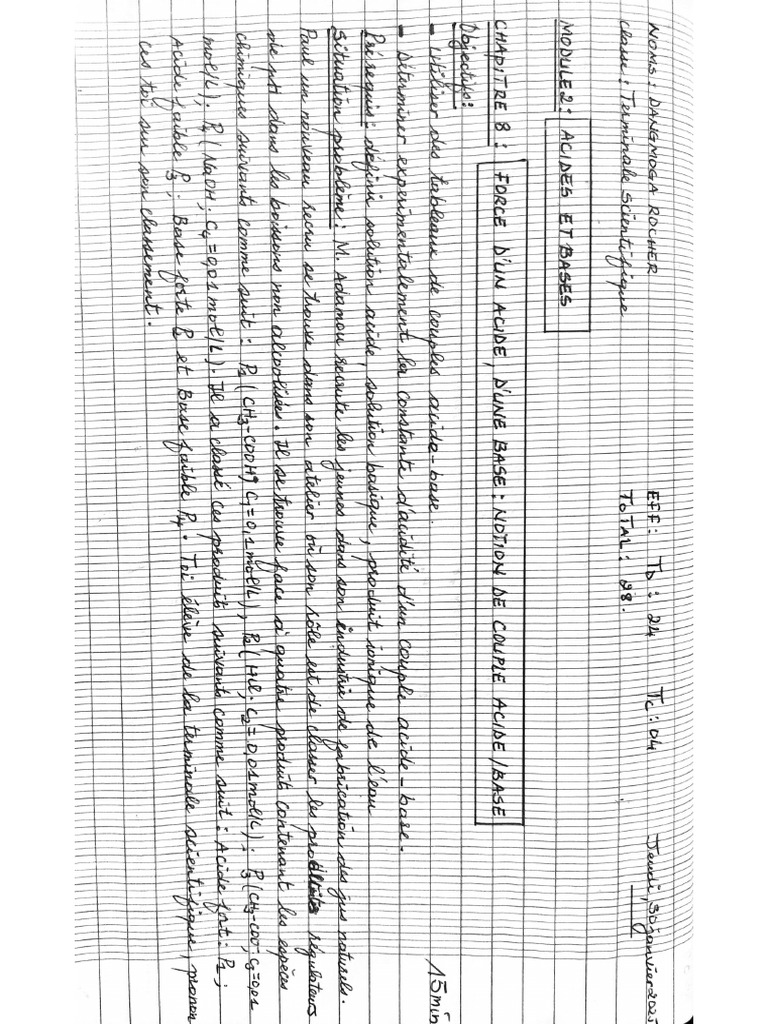 NOMS : DANGMOGA ROCHER EFF : TD : 24 TC : 04 Jeudi, 30 janvier 2025
classe : Terminale Scientifique TOTAL : 28.
MODULE 2 : ACIDES ET BASES
CHAPITRE 8 : FORCE D'UN ACIDE, D'UNE BASE : NOTION DE COUPLE ACIDE/BASE
Objectifs : 15min
- Utiliser des tableaux de couples acido-base.
- Déterminer expérimentalement la constante d'acidité d'un couple acide-base.
Prérequis : définir solution acide, solution basique, produit ionique de l'eau
Situation problème : M. Adamou recrute les jeunes dans son industrie de fabrication des jus naturels.
Paul un nouveau recru se trouve dans son atelier où son rôle est de classer les produits régulateurs
de pH dans les boissons non alcoolisées. Il se trouve face à quatre produits contenant les espèces
chimiques suivants comme suit : P1 (CH3-COOH; C1=0,1mol/L), P2 (HCl. C2=0,01mol/L). P3 (CH3-COO-; C3=0,01
mol/L). P4 (NaOH; C4=0,01mol/L). Il a classé ces produits suivants comme suit : Acide fort : P1;
Acide faible P3; Base forte P2 et Base faible P4. Toi élève de la terminale scientifique, pronon
ces toi sur son classement.